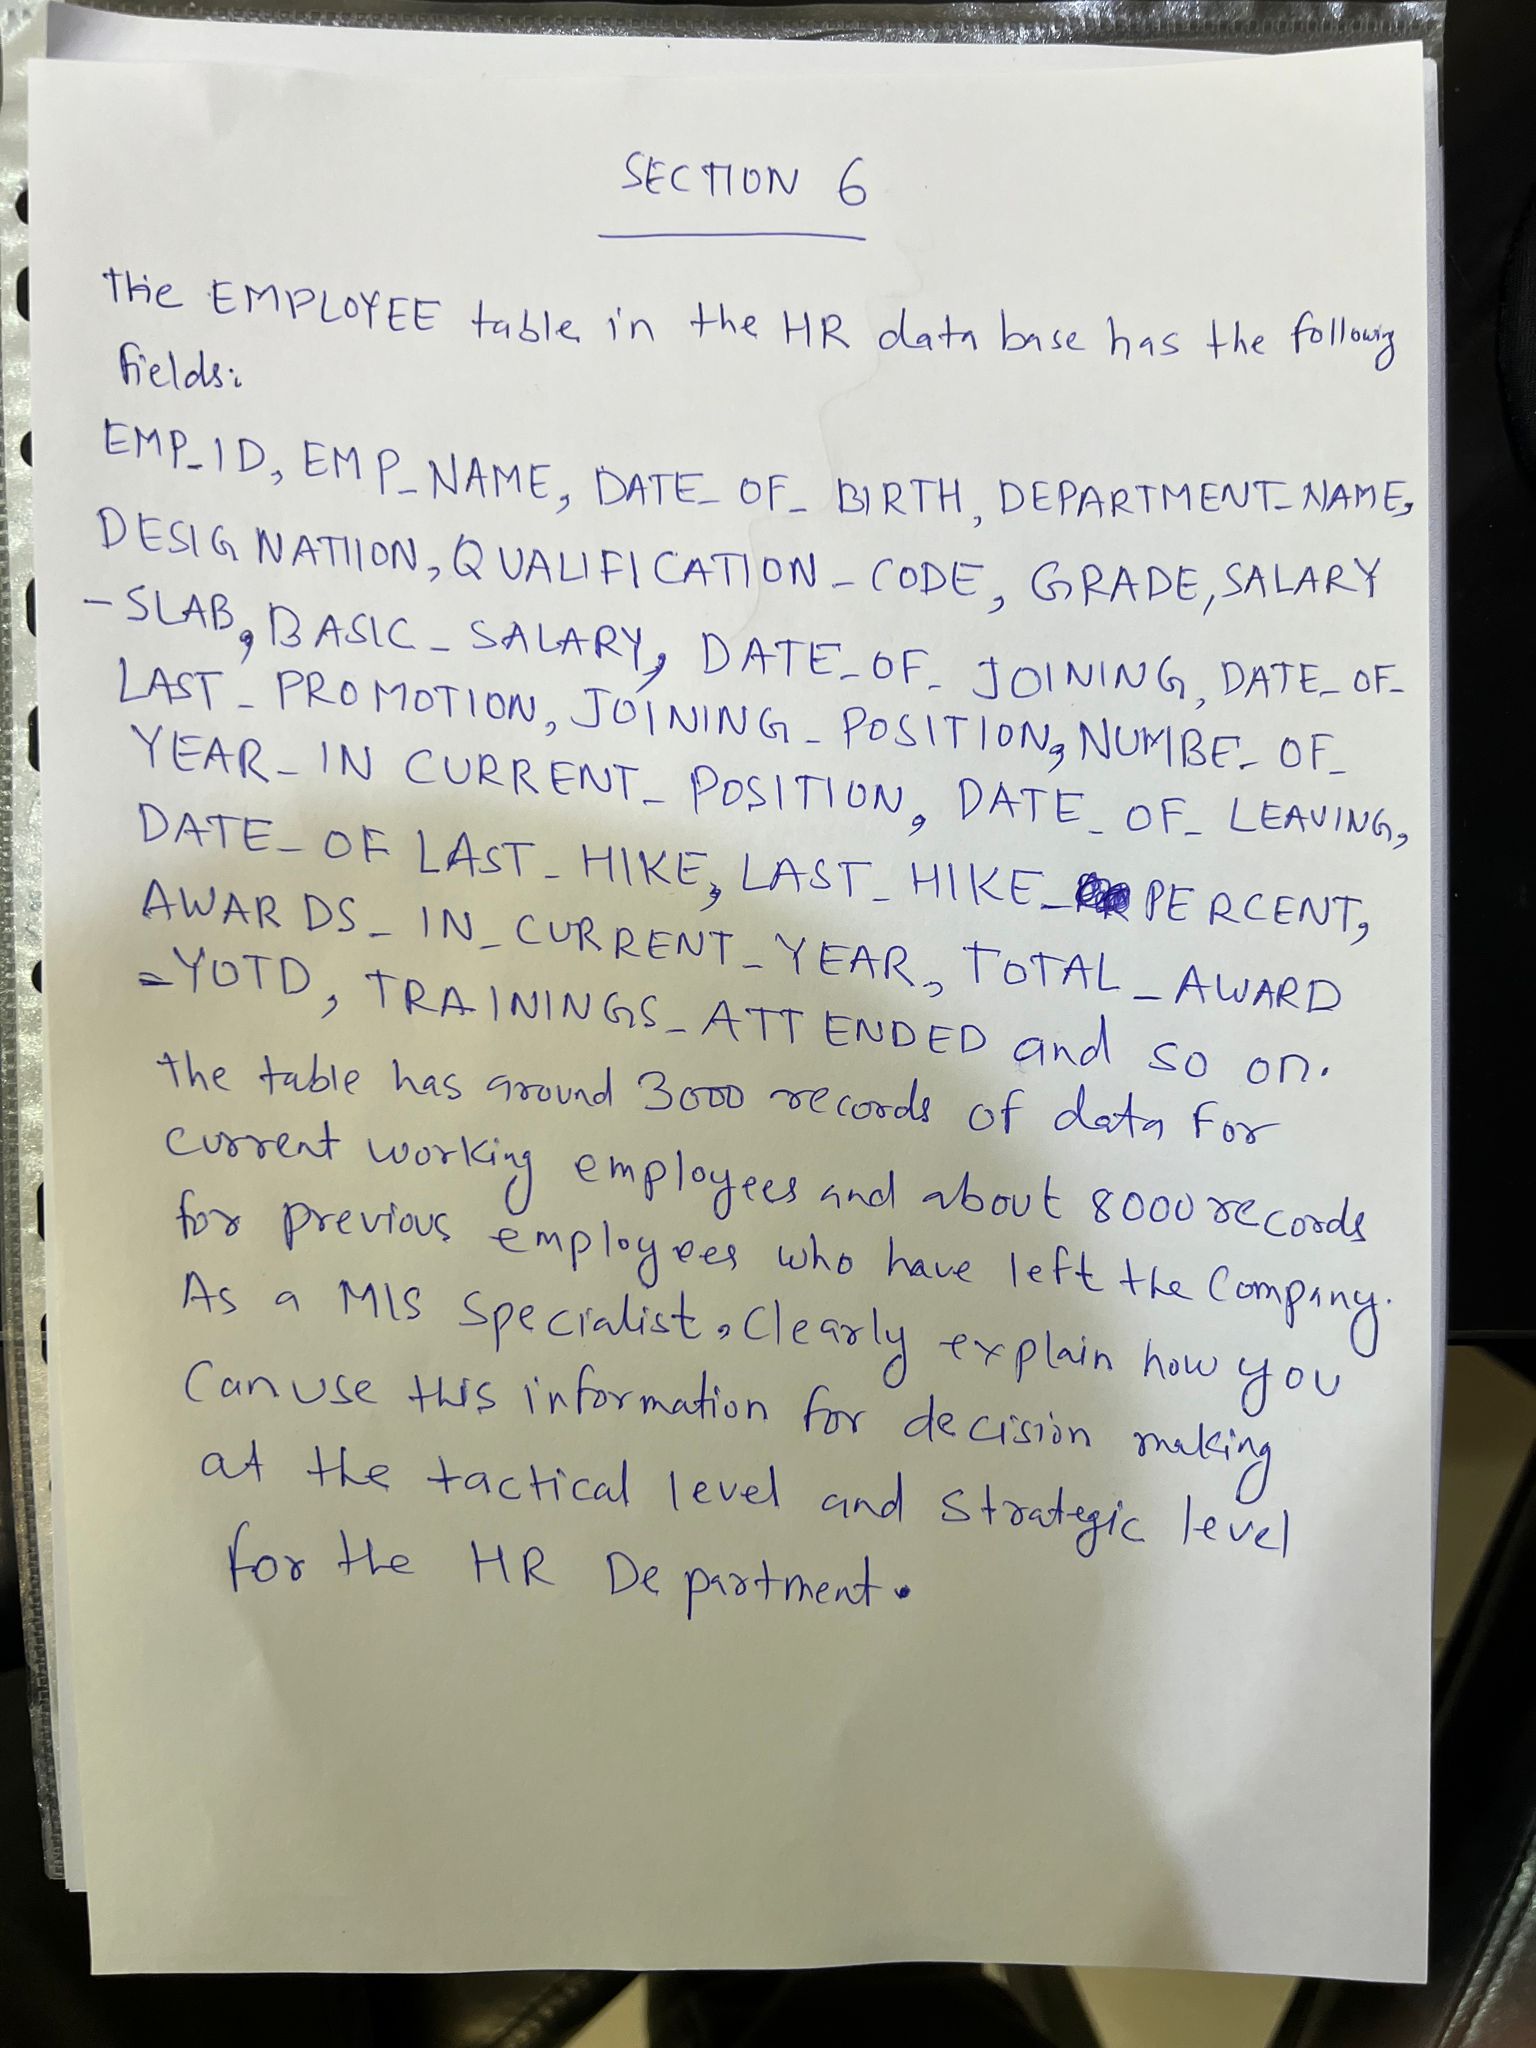 SECTION 6
The EMPLOYEE table in the HR data base has the following
fields:
EMP_ID, EMP_NAME, DATE_OF_BIRTH, DEPARTMENT_NAME,
DESIGNATIION, QUALIFICATION_CODE, GRADE, SALARY
_SLAB, BASIC_SALARY, DATE_OF_JOINING, DATE_OF_
LAST_PROMOTION, JOINING_POSITION, NUMBE_OF_
YEAR_IN CURRENT_POSITION, DATE_OF_LEAVING,
DATE_OF LAST_HIKE, LAST_HIKE_PERCENT,
AWARDS_IN_CURRENT_YEAR, TOTAL_AWARD
_YOTD, TRAININGS_ATTENDED and so on.
the table has around 3000 records of data for
current working employees and about 8000 records
for previous employees who have left the Company.
As a MIS Specialist, Clearly explain how you
Can use this information for decision making
at the tactical level and strategic level
for the HR Department.